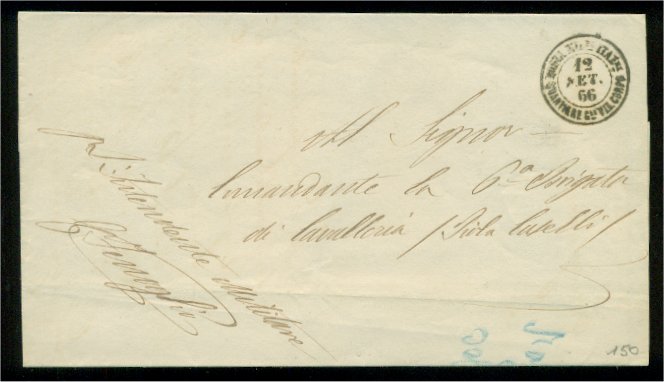 POSTA MILe ITALna
12
SET.
66
QUARTIERE Gle VII CORPO
Al Signor
Comandante la 6a Brigata
di Cavalleria / Piola Caselli /
L'Intendente Militare
150